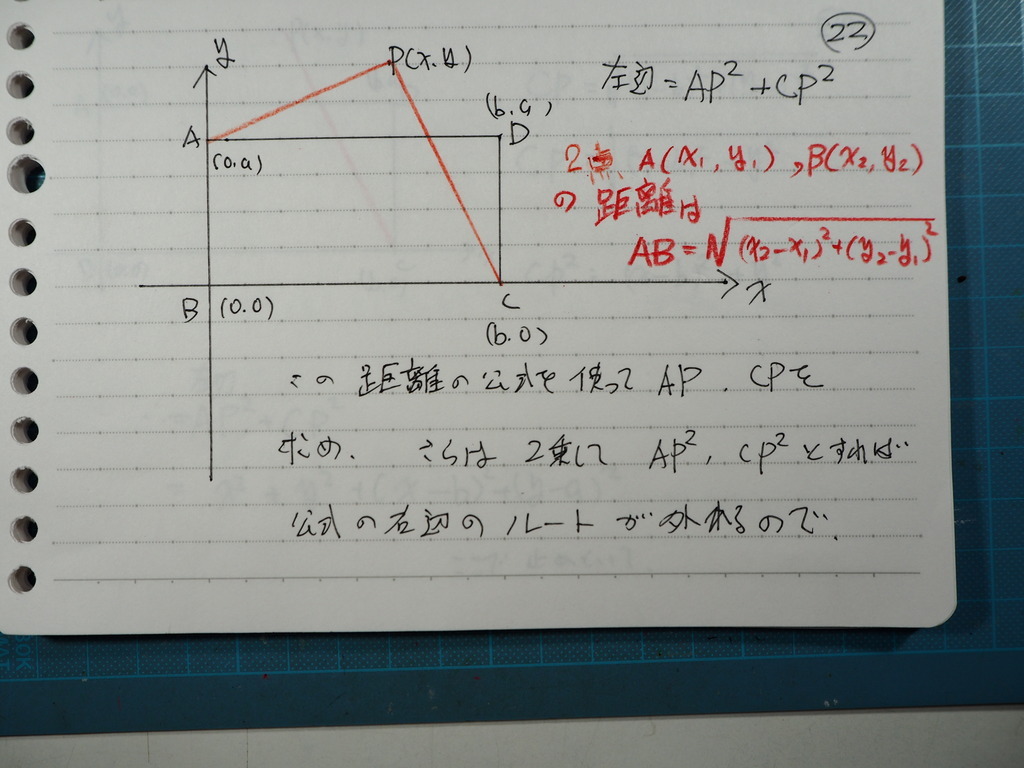 23
y
P(x.y)
左辺=AP²+CP²
(b,a)
A
D
(0.a)
2点 A(x₁,y₁),B(x₂,y₂)
の距離は
AB=√(x₂-x₁)²+(y₂-y₁)²
x
B (0.0)
C
(b.0)
この距離の公式を使ってAP.CPを
求め. さらは2乗してAP²,CP²とすれば
公式の右辺のルートが外れるので.